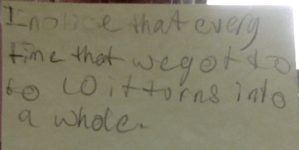 I notice that every
time that we got to
to 10 it torns into
a whole.